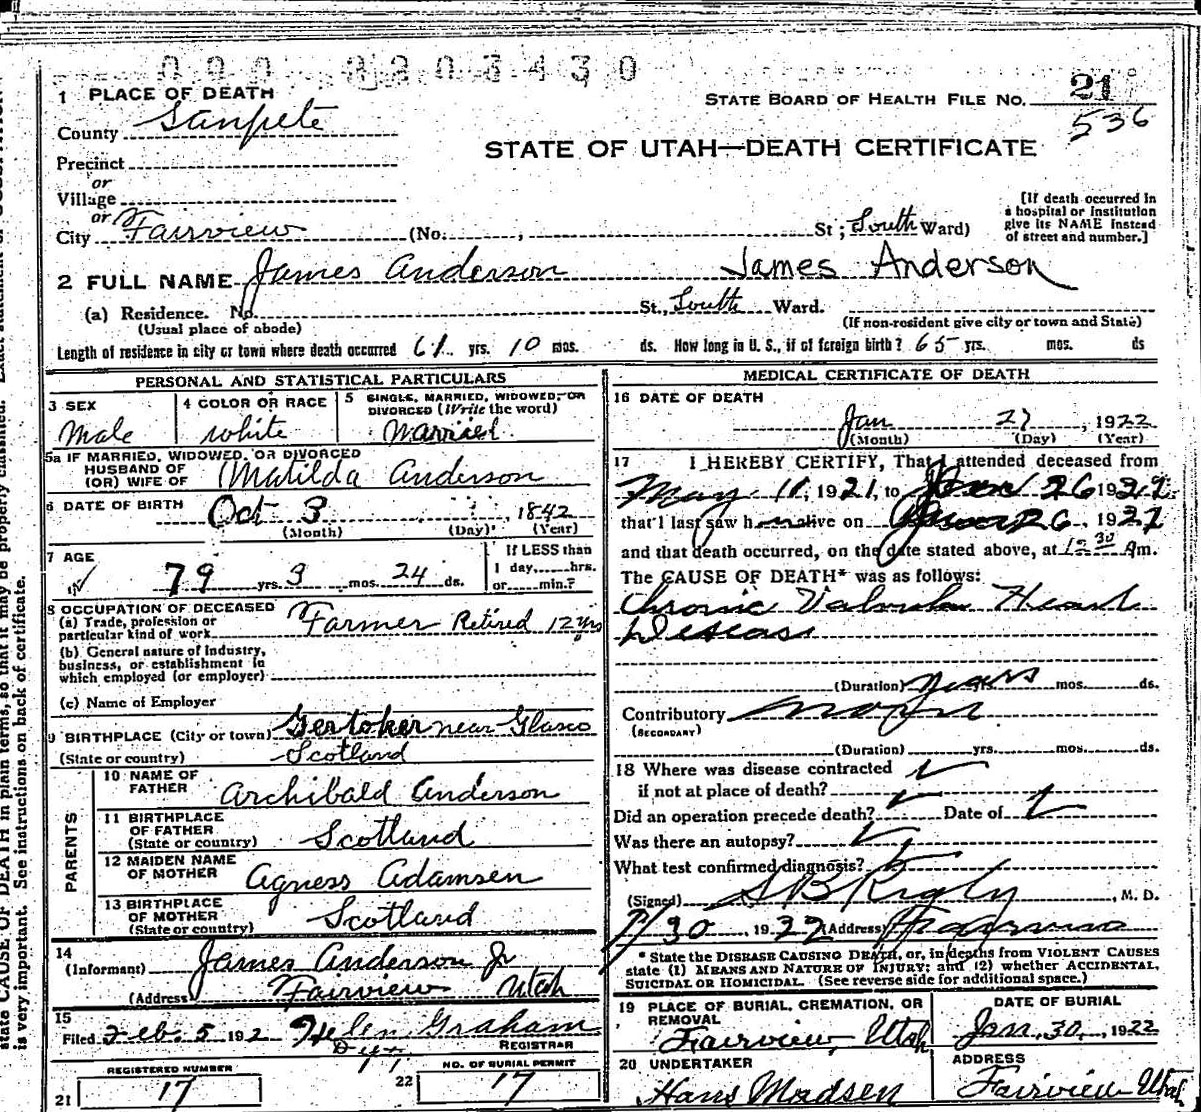 21
STATE BOARD OF HEALTH FILE NO.
536
1 PLACE OF DEATH
County Sanpete
STATE OF UTAH—DEATH CERTIFICATE
Precinct
or
Village
or
City Fairview (No. , St ; South Ward)
[If death occurred in a hospital or institution give its NAME instead of street and number.]
2 FULL NAME James Anderson James Anderson
(a) Residence. No. St., South Ward.
(Usual place of abode) (If non-resident give city or town and State)
Length of residence in city or town where death occurred 61 yrs. 10 mos. ds. How long in U. S., if of foreign birth? 65 yrs. mos. ds
PERSONAL AND STATISTICAL PARTICULARS
3 SEX Male
4 COLOR OR RACE white
5 SINGLE, MARRIED, WIDOWED, OR DIVORCED (Write the word) Married
5a IF MARRIED, WIDOWED, OR DIVORCED
HUSBAND OF
(OR) WIFE OF Matilda Anderson
6 DATE OF BIRTH Oct 3, 1842
(Month) (Day) (Year)
7 AGE
79 yrs. 3 mos. 24 ds.
If LESS than
1 day, hrs.
or min.?
8 OCCUPATION OF DECEASED
(a) Trade, profession or
particular kind of work Farmer Retired 12 yrs
(b) General nature of Industry,
business, or establishment in
which employed (or employer)
(c) Name of Employer
9 BIRTHPLACE (City or town) near Glasco
(State or country) Scotland
PARENTS
10 NAME OF
FATHER Archibald Anderson
11 BIRTHPLACE
OF FATHER
(State or country) Scotland
12 MAIDEN NAME
OF MOTHER Agness Adamsen
13 BIRTHPLACE
OF MOTHER
(State or country) Scotland
14
(Informant) James Anderson Jr
(Address) Fairview Utah
15
Filed Feb. 5 192 Helen Graham
REGISTRAR
REGISTERED NUMBER
21 17
NO. OF BURIAL PERMIT
22 17
MEDICAL CERTIFICATE OF DEATH
16 DATE OF DEATH
Jan 27, 1922
(Month) (Day) (Year)
17 I HEREBY CERTIFY, That I attended deceased from
May 11, 1921, to 26 192
that I last saw h alive on 26, 192
and that death occurred, on the date stated above, at 12 30 Am.
The CAUSE OF DEATH* was as follows:
Chronic Valvular Heart
Disease
(Duration) years yrs. mos. ds.
Contributory
(SECONDARY)
(Duration) yrs. mos. ds.
18 Where was disease contracted
if not at place of death?
Did an operation precede death? Date of
Was there an autopsy?
What test confirmed diagnosis?
(Signed) S B Rigby, M. D.
1/30, 1922 (Address) Fairview
* State the DISEASE CAUSING DEATH, or, in deaths from VIOLENT CAUSES
state (1) MEANS AND NATURE OF INJURY; and (2) whether ACCIDENTAL,
SUICIDAL OR HOMICIDAL. (See reverse side for additional space.)
19 PLACE OF BURIAL, CREMATION, OR
REMOVAL
Fairview, Utah
DATE OF BURIAL
Jan. 30, 1922
20 UNDERTAKER
Hans Madsen
ADDRESS
Fairview Utah
state CAUSE OF DEATH in plain terms, so that it may be properly classified.
is very important. See instructions on back of certificate.